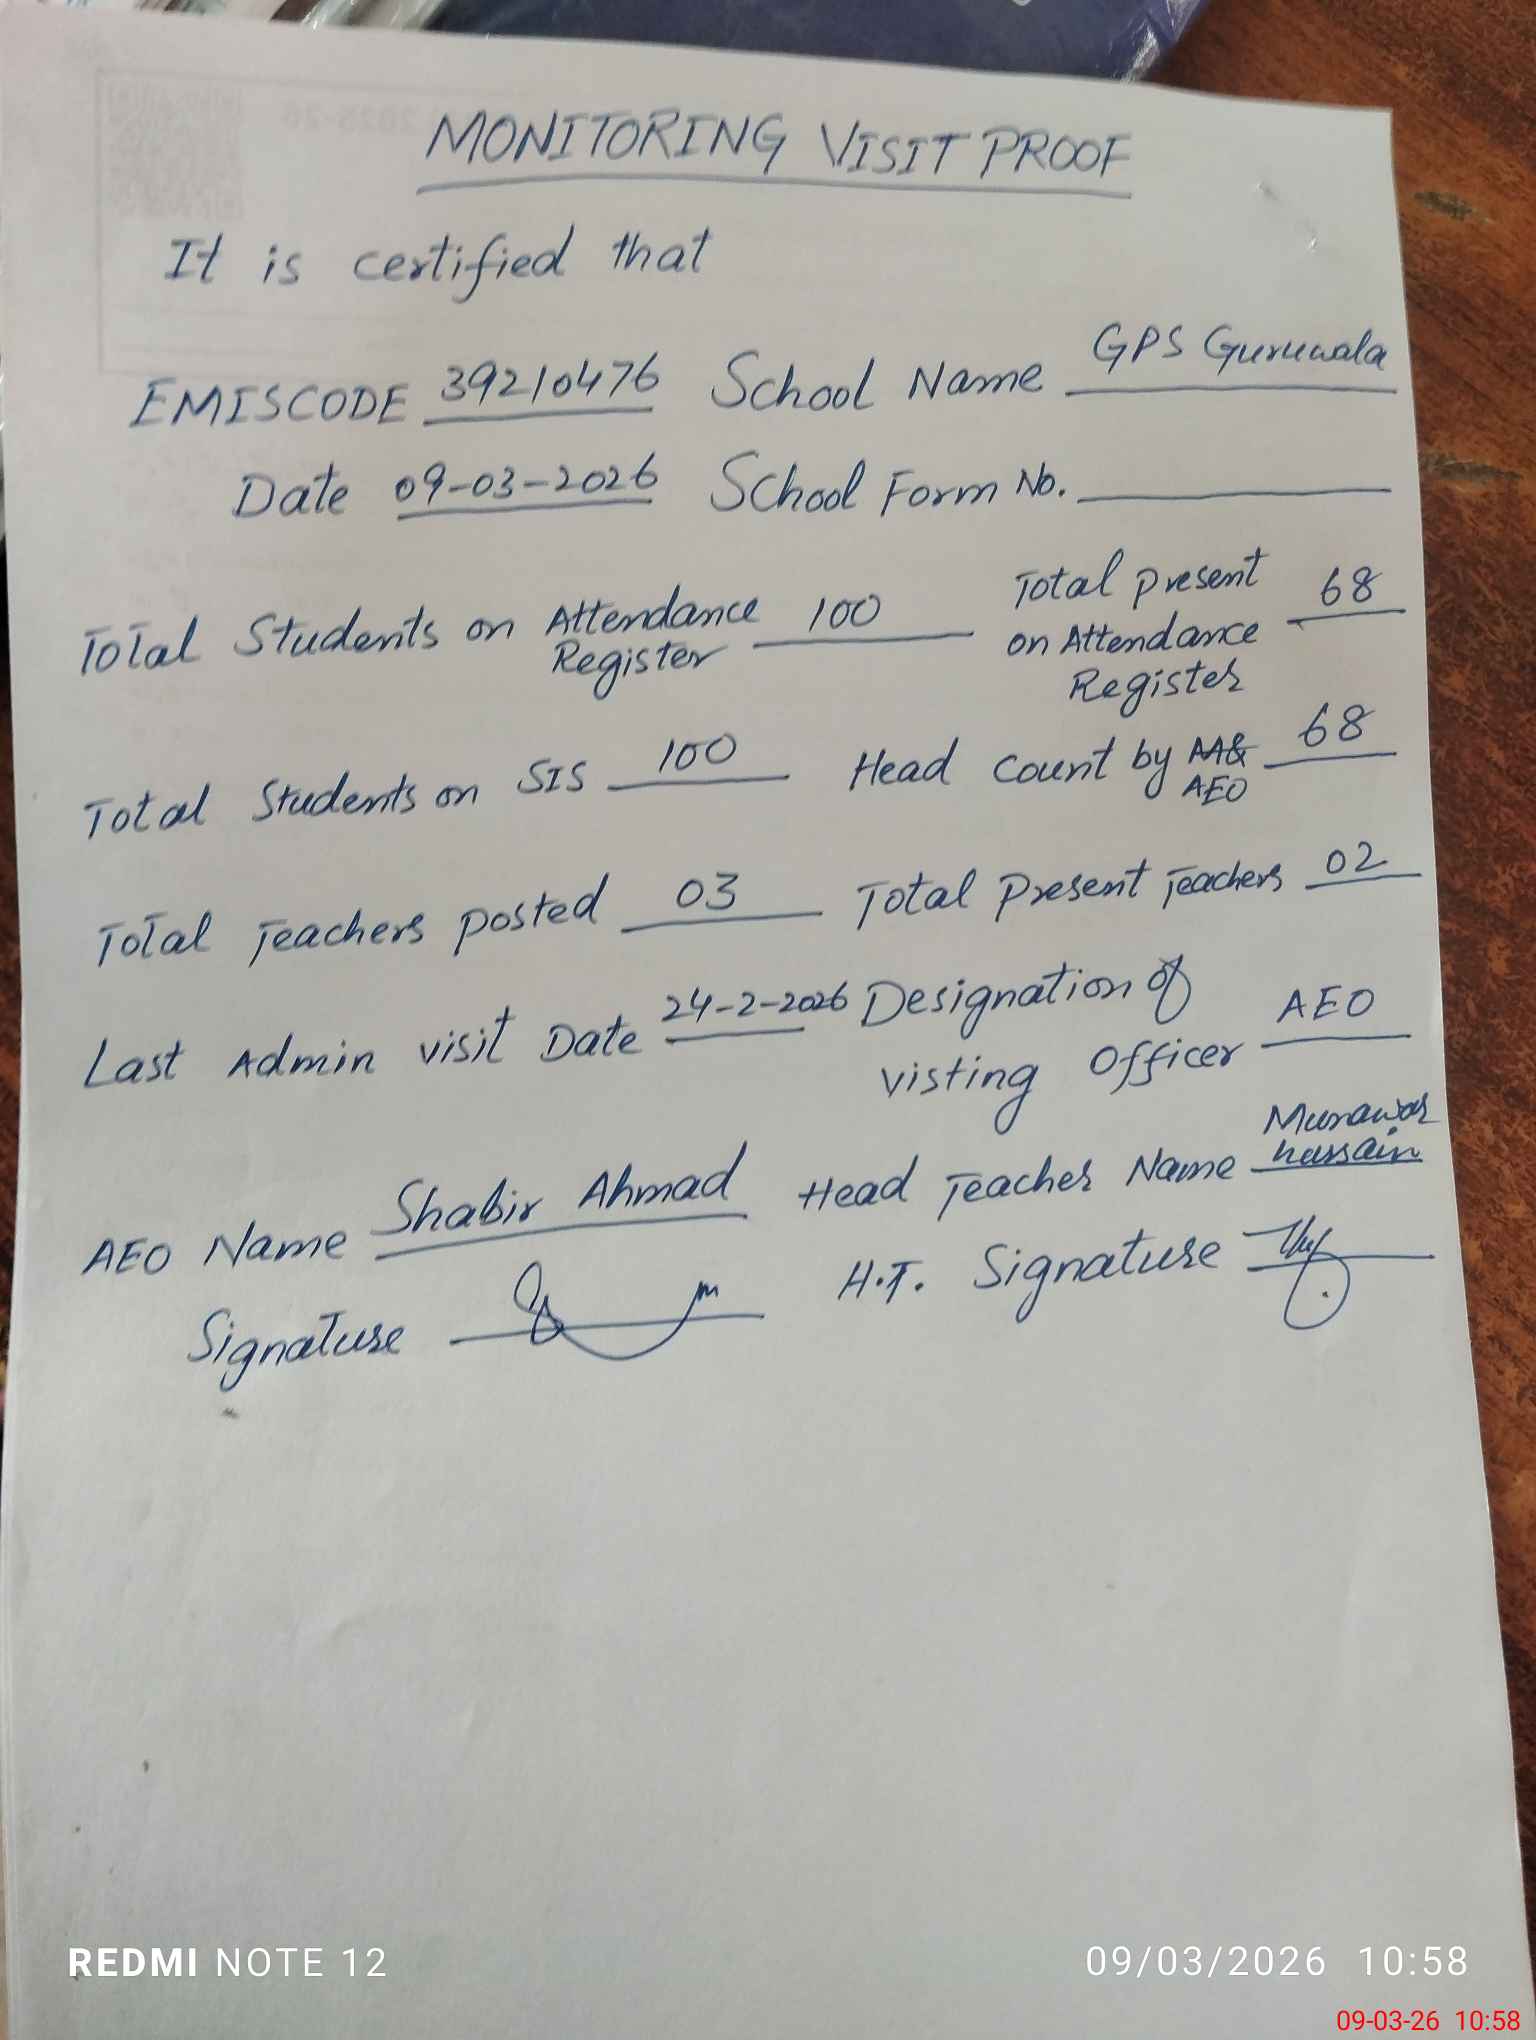 MONITORING VISIT PROOF
It is certified that
EMISCODE 39210476 School Name GPS Guruwala
Date 09-03-2026 School Form No.
Total Students on Attendance Register 100 Total present on Attendance Register 68
Total Students on SIS 100 Head Count by AEO 68
Total Teachers posted 03 Total Present Teachers 02
Last Admin visit Date 24-2-2026 Designation of visting Officer AEO
AEO Name Shabir Ahmad Head Teacher Name Munawar hussain
Signature H.T. Signature
REDMI NOTE 12
09/03/2026 10:58
09-03-26 10:58